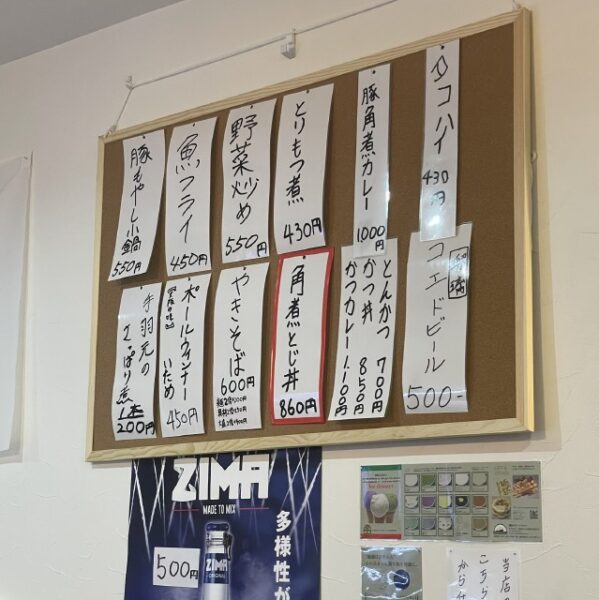 コハイ
430円
豚角煮カレー
1,000円
とりもつ煮
430円
野菜炒め
550円
魚フライ
450円
豚もやし小鍋
550円
コエドビール
500-
とんかつ 700円
かつ丼 850円
かつカレー 1,100円
角煮とじ丼
860円
やきそば
600円
ポールウィンナー
いため
450円
手羽元の
さっぱり煮
1本
200円
ZIMA
MADE TO MIX
多様性が
ZIMA
500円
当店の
こちら
から